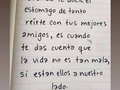 estomago de tanto
reirte con tus mejores
amigos, es cuando
te das cuenta que
la vida no es tan mala,
si estan ellos a nuestro
lado.